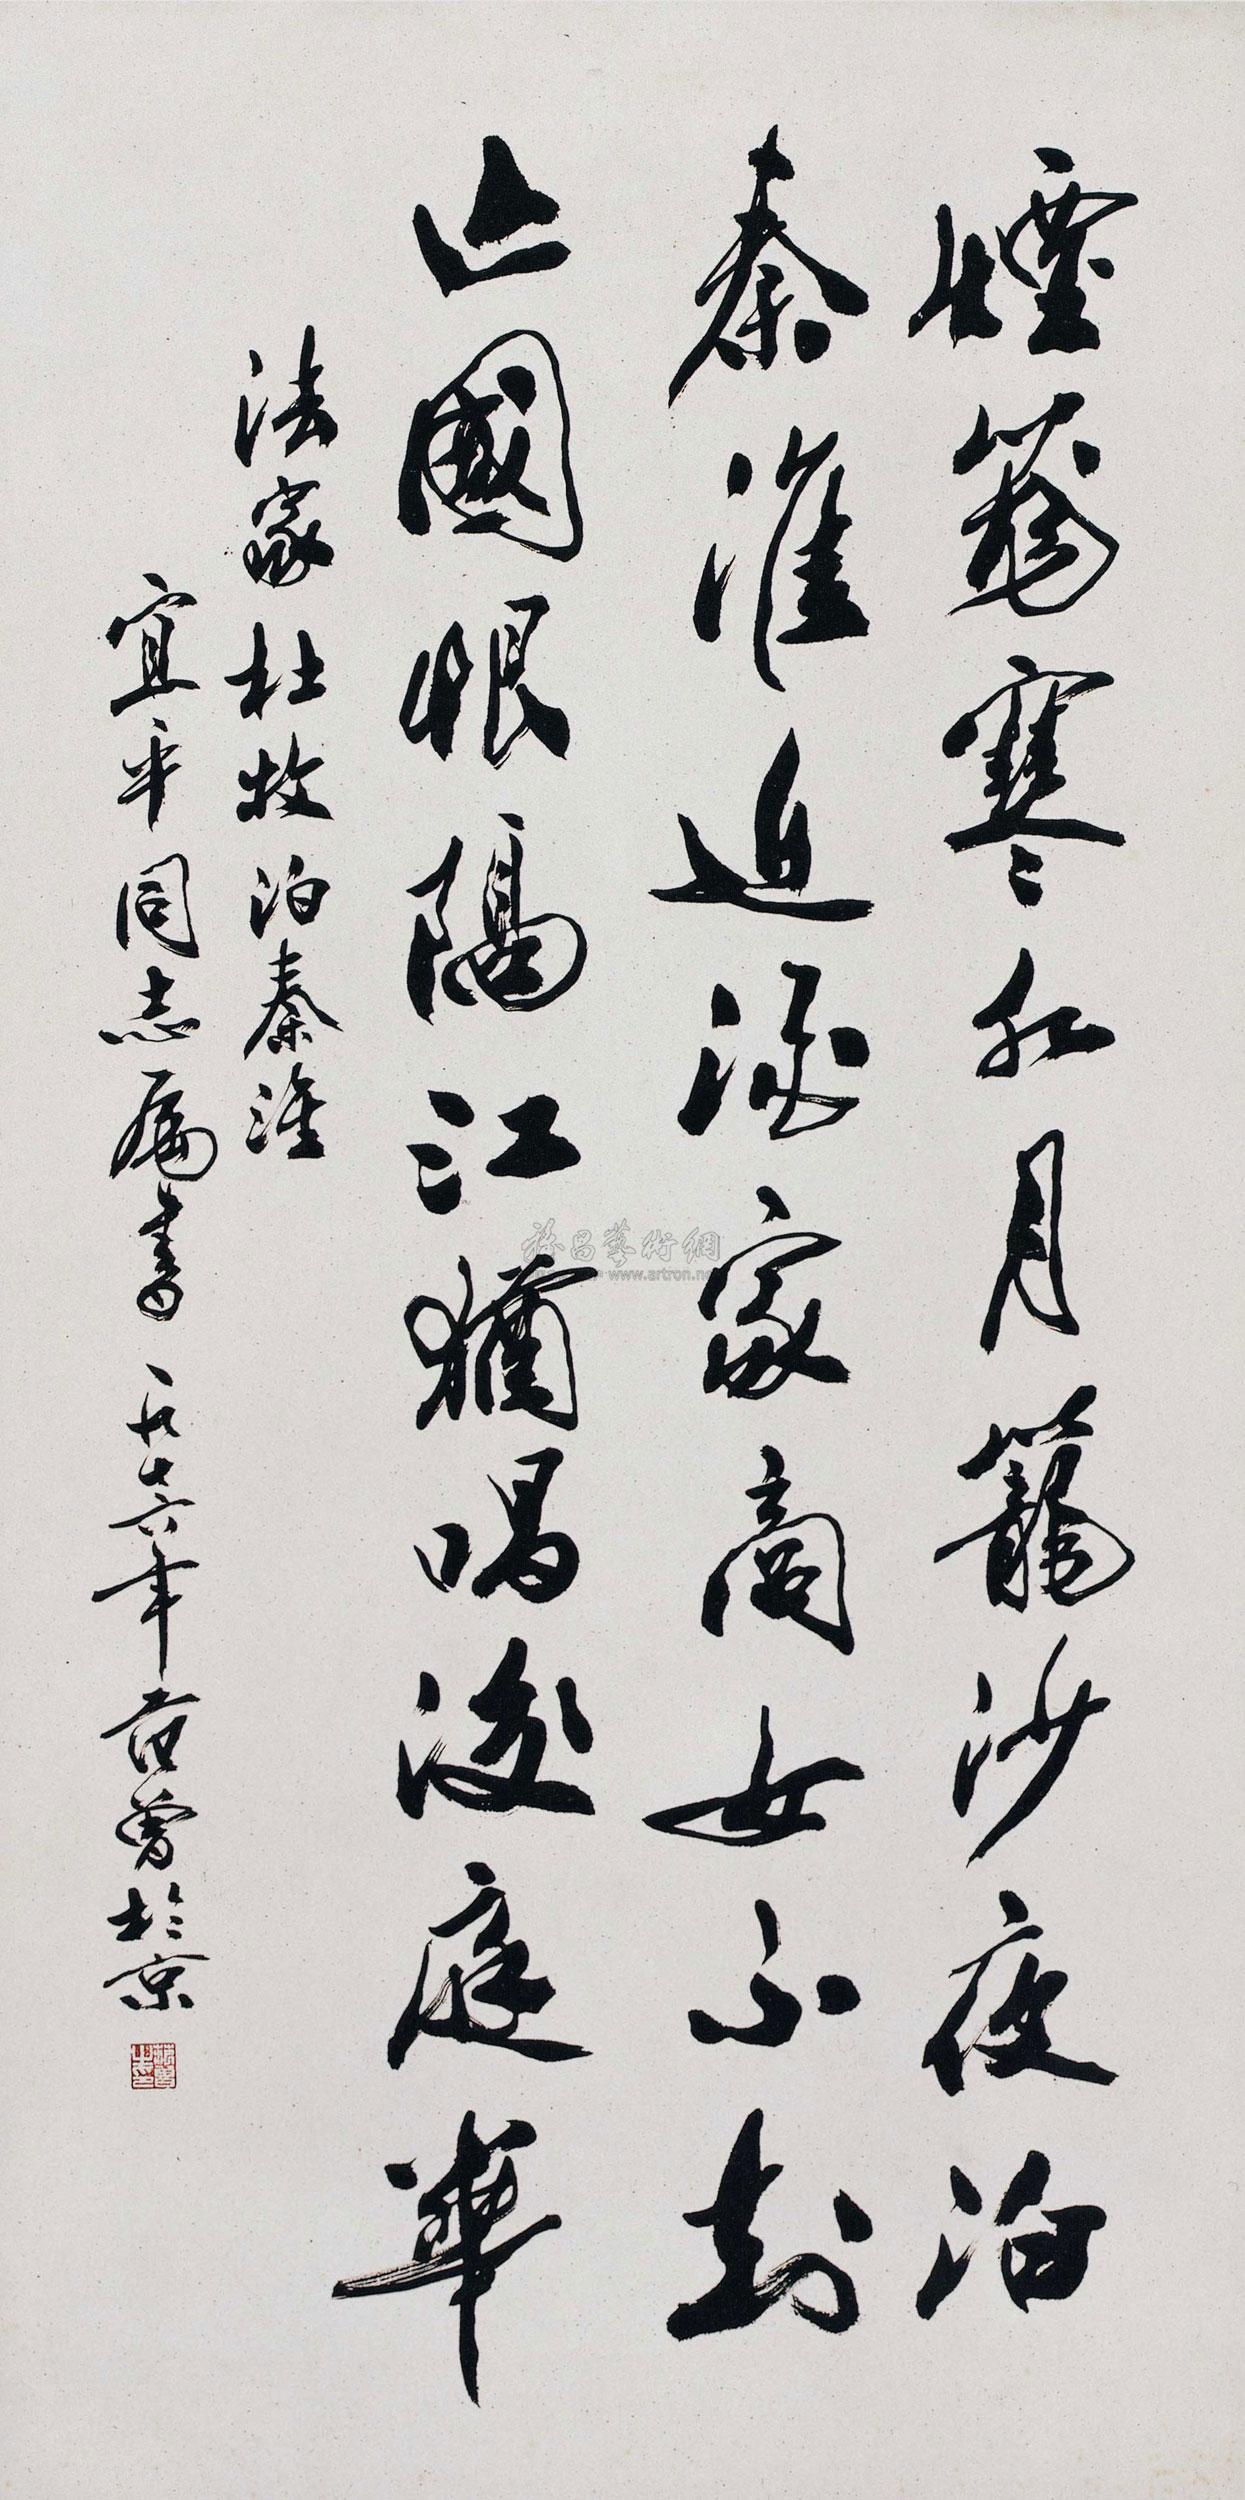 煙籠寒水月籠沙夜泊
秦淮近酒家商女不知
亡國恨隔江猶唱後庭華
法家杜牧泊秦淮
宜平同志屬書 一九七六年范曾於京
雅昌藝術網
www.artron.net